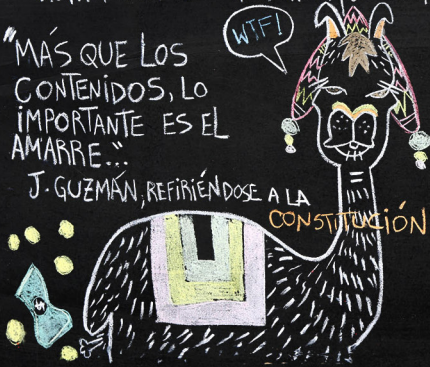 "MÁS QUE LOS
CONTENIDOS, LO
IMPORTANTE ES EL
AMARRE"...
J. GUZMÁN, REFIRIÉNDOSE A LA
CONSTITUCIÓN
WTF!